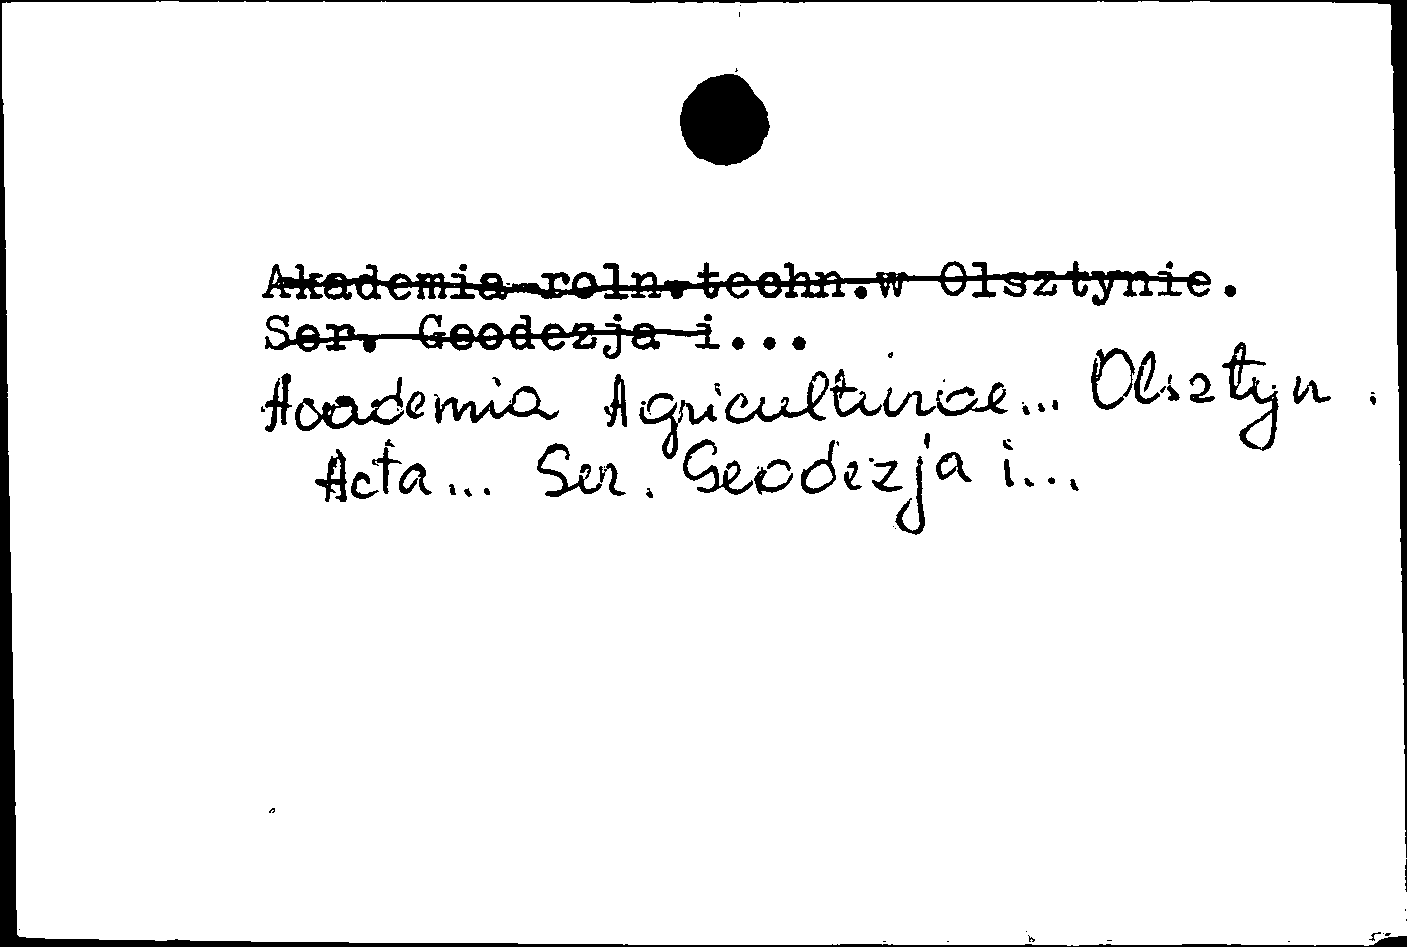 Akademia roln.techn.w Olsztynie.
Ser. Geodezja i...
Academia Agriculturae... Olsztyn.
Acta... Ser. Geodezja i...